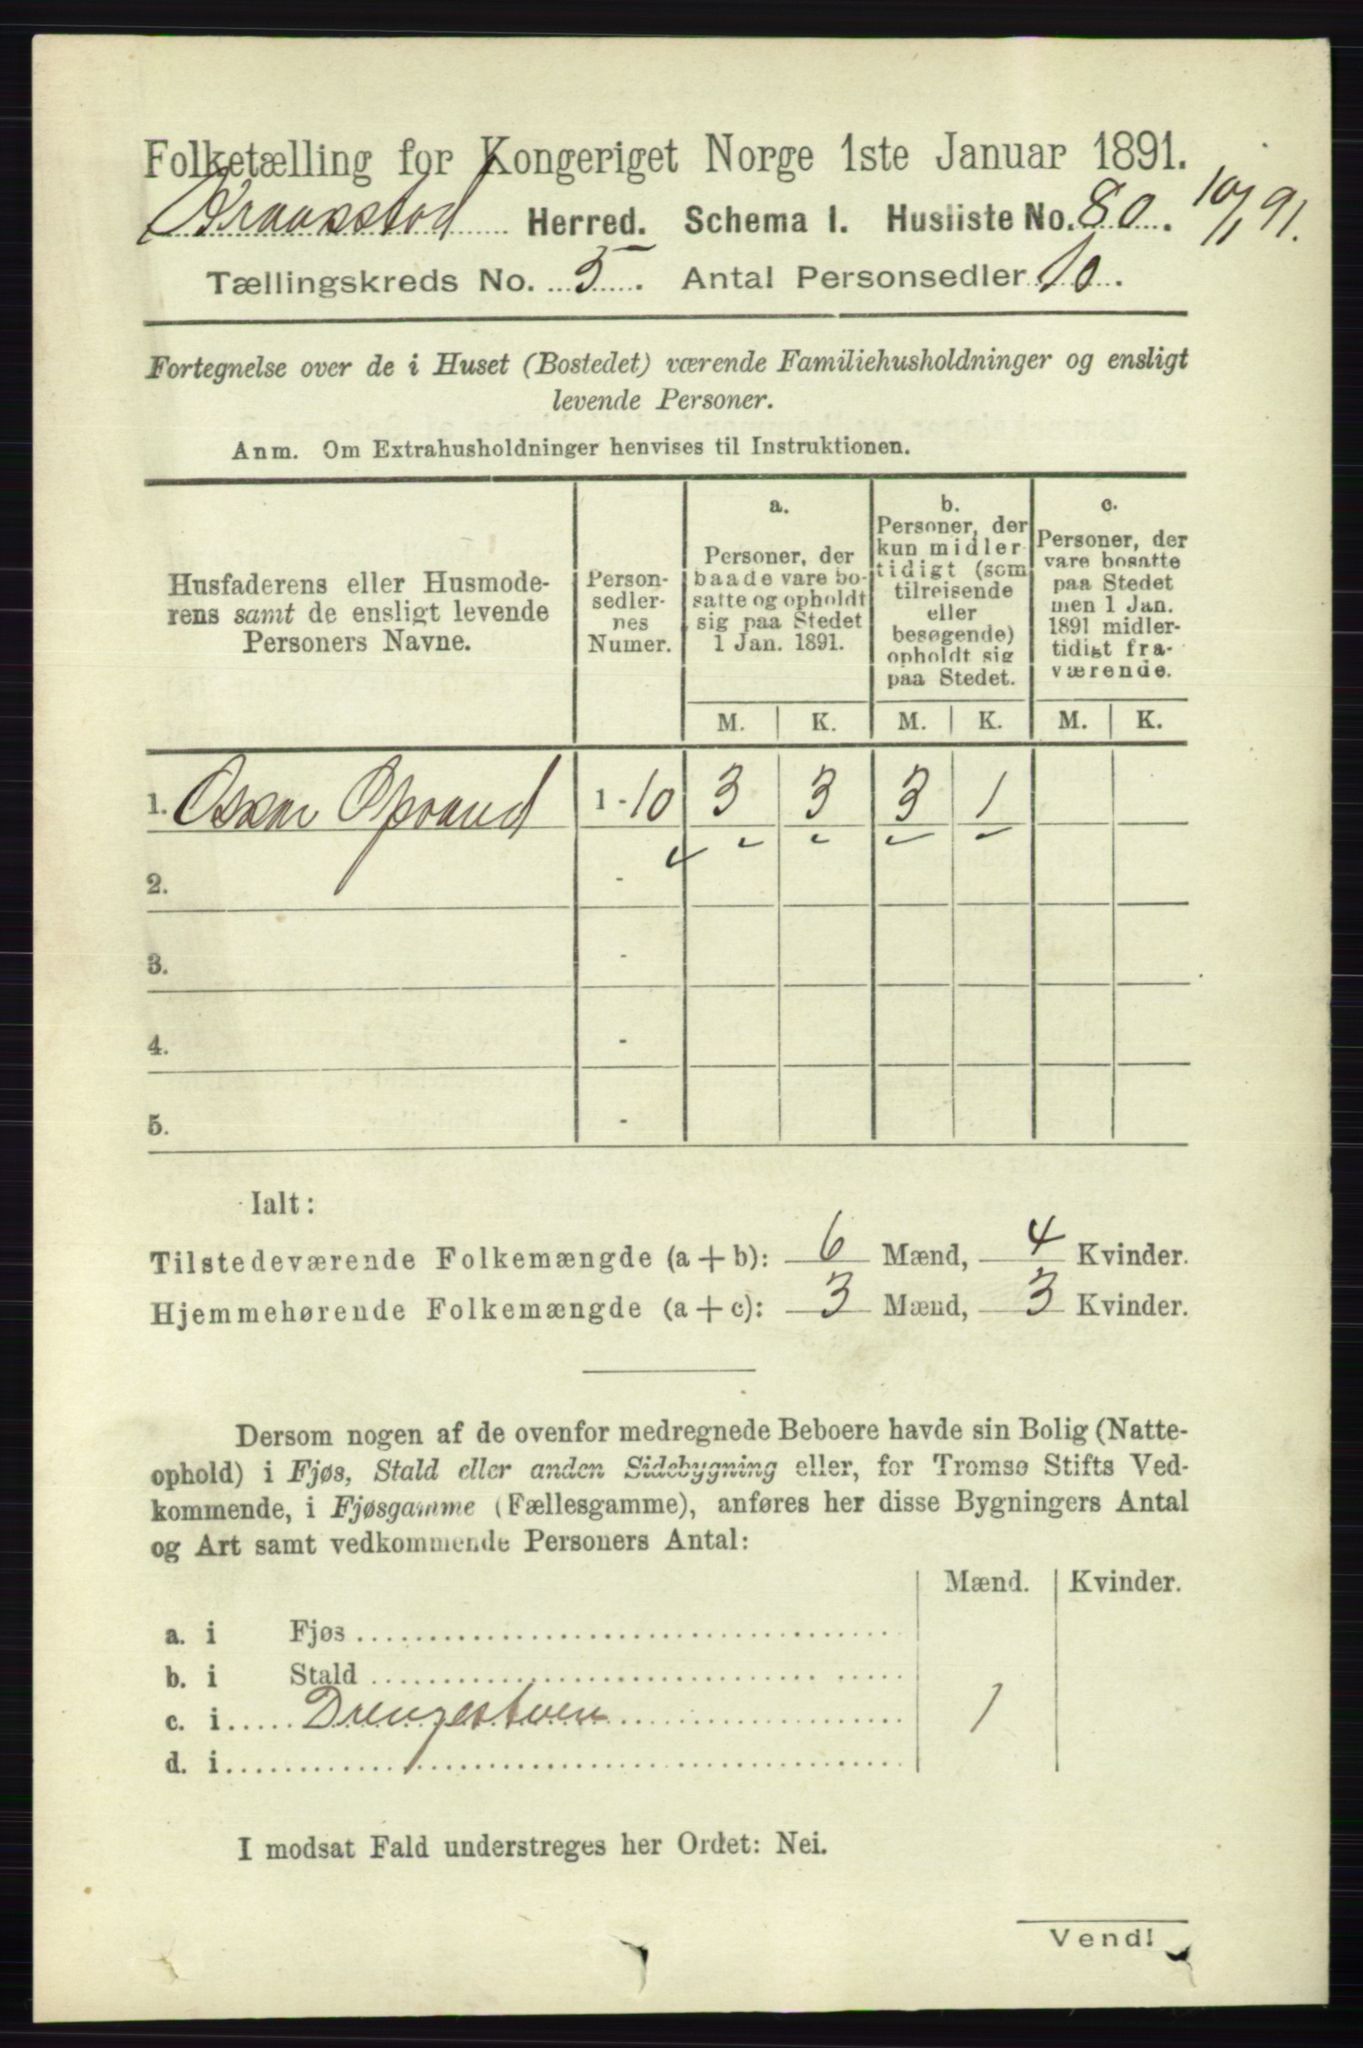 Folketælling for Kongeriget Norge 1ste Januar 1891.
Kraakstad Herred. Schema I. Husliste No. 80. 10/1 91.
Tællingskreds No. 5. Antal Personsedler 10.
Fortegnelse over de i Huset (Bostedet) værende Familiehusholdninger og ensligt
levende Personer.
Anm. Om Extrahusholdninger henvises til Instruktionen.
Husfaderens eller Husmode-
rens samt de ensligt levende
Personers Navne.
Person-
sedler-
nes
Numer.
a.
Personer, der
baade vare bo-
satte og opholdt
sig paa Stedet
1 Jan. 1891.
b.
Personer, der
kun midler-
tidigt (som
tilreisende
eller
besøgende)
opholdt sig
paa Stedet.
c.
Personer, der
vare bosatte
paa Stedet
men 1 Jan.
1891 midler-
tidigt fra-
værende.
M. K. M. K. M. K.
1. Oskar 1 - 10 3 3 3 1
2. -
3. -
4. -
5. -
Ialt:
Tilstedeværende Folkemængde (a + b): 6 Mænd, 4 Kvinder.
Hjemmehørende Folkemængde (a + c): 3 Mænd, 3 Kvinder.
Dersom nogen af de ovenfor medregnede Beboere havde sin Bolig (Natte-
ophold) i Fjøs, Stald eller anden Sidebygning eller, for Tromsø Stifts Ved-
kommende, i Fjøsgamme (Fællesgamme), anføres her disse Bygningers Antal
og Art samt vedkommende Personers Antal:
Mænd. Kvinder.
a. i Fjøs
b. i Stald
c. i Drengestuen 1
d. i
I modsat Fald understreges her Ordet: Nei.
Vend!